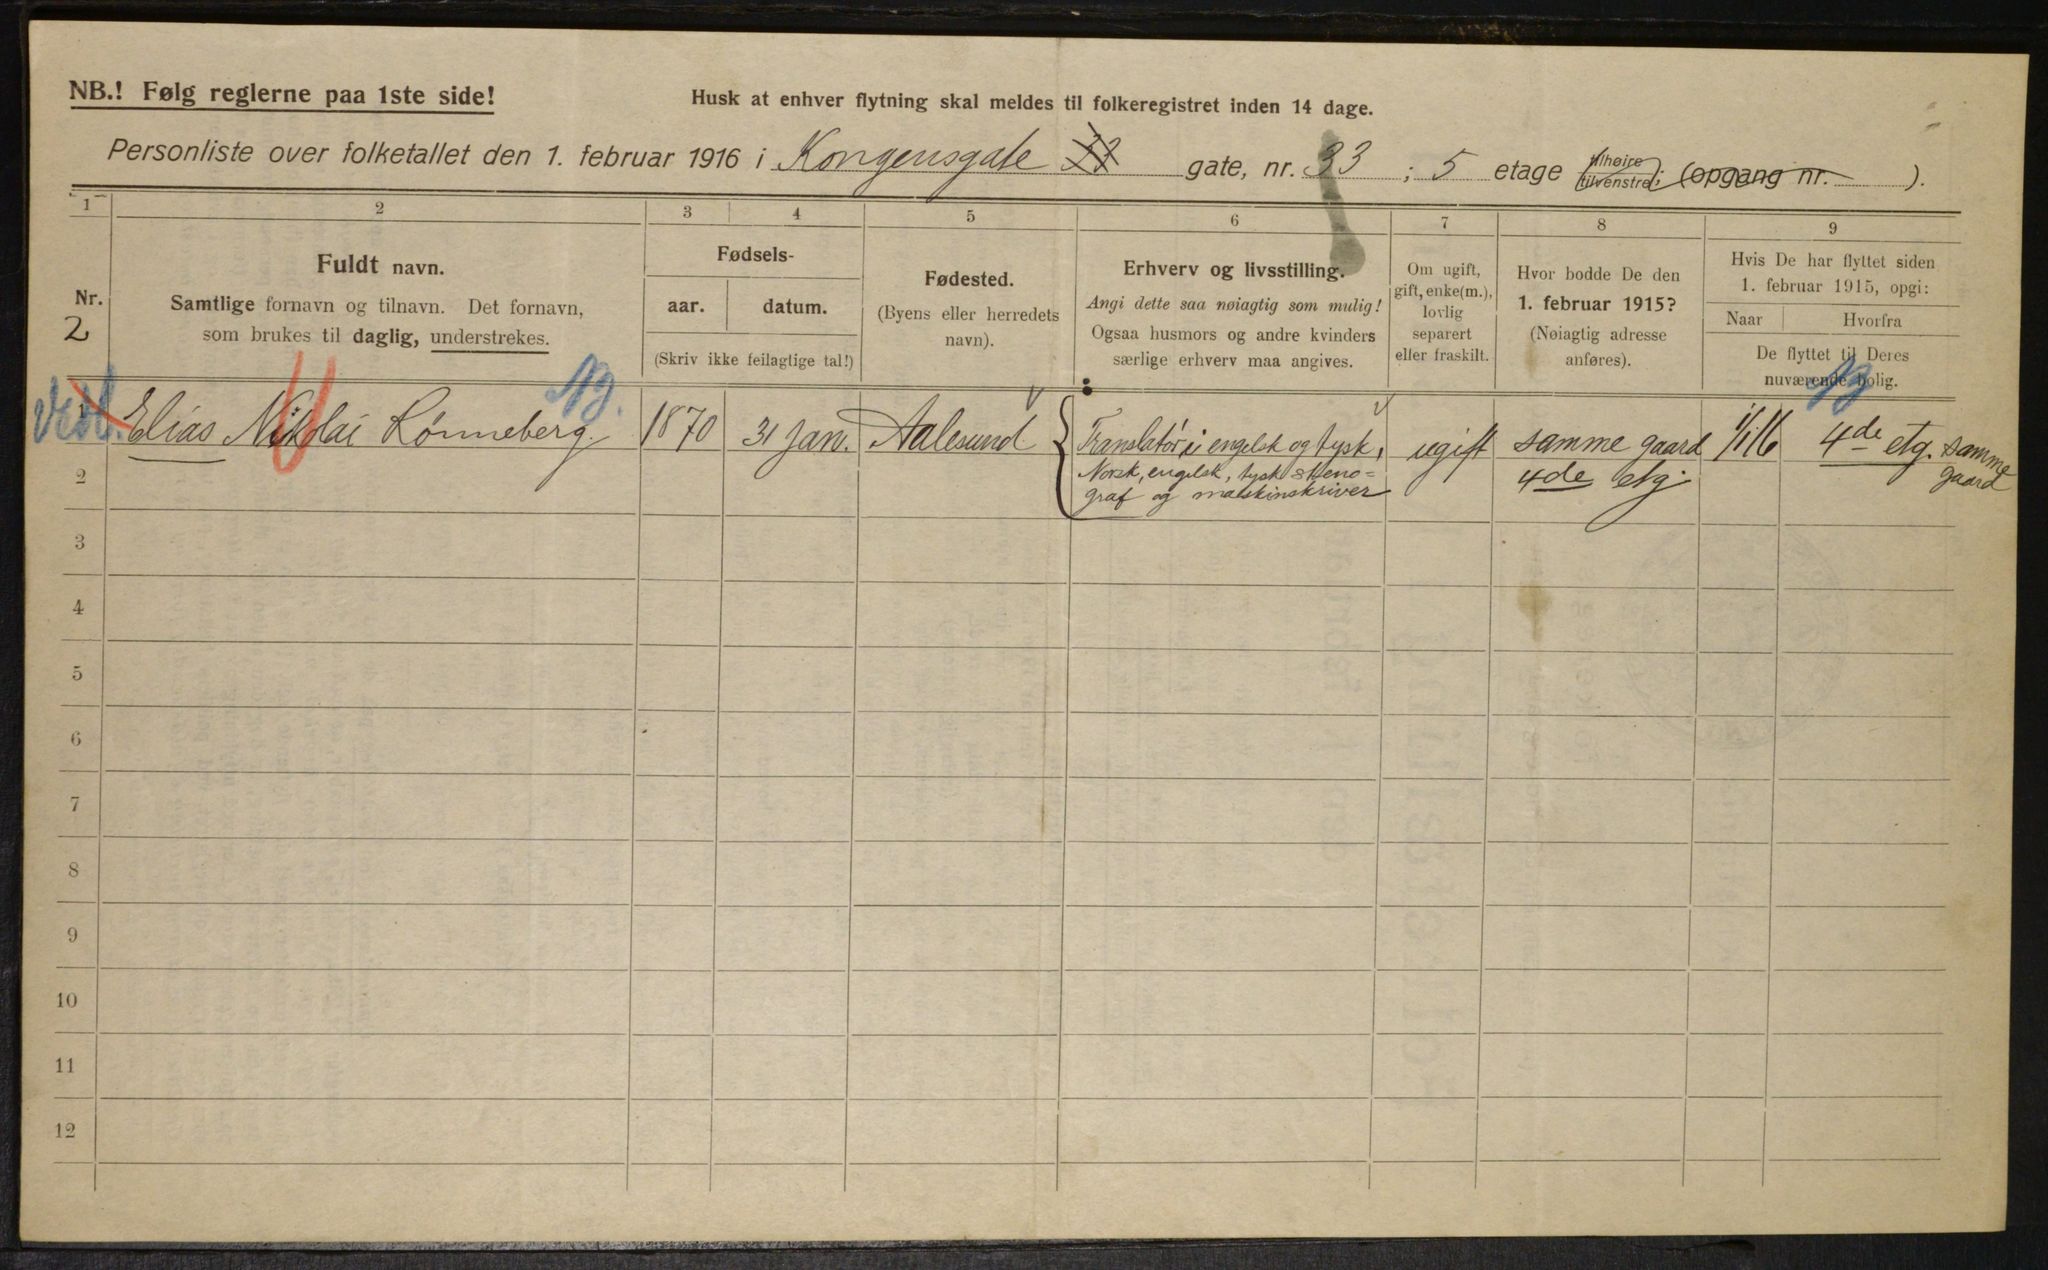 NB.! Følg reglerne paa 1ste side!
Husk at enhver flytning skal meldes til folkeregistret inden 14 dage.
Personliste over folketallet den 1. februar 1916 i Kongensgate gate, nr. 33 ; 5 etage (tilhøire tilvenstre); (opgang nr. ).
1 2 3 4 5 6 7 8 9
Nr.
2
Fuldt navn.
Samtlige fornavn og tilnavn. Det fornavn,
som brukes til daglig, understrekes.
Fødsels-
aar. datum.
(Skriv ikke feilagtige tal!)
Fødested.
(Byens eller herredets
navn).
Erhverv og livsstilling.
Angi dette saa nøiagtig som mulig!
Ogsaa husmors og andre kvinders
særlige erhverv maa angives.
Om ugift,
gift, enke(m.),
lovlig
separert
eller fraskilt.
Hvor bodde De den
1. februar 1915?
(Nøiagtig adresse
anføres).
Hvis De har flyttet siden
1. februar 1915, opgi:
Naar Hvorfra
De flyttet til Deres
nuværende bolig.
NB.
NB
1 Elias Nikolai Rønneberg. 1870 31 jan. Aalesund Translatør i engelsk og tysk, ugift samme gaard 1/1 16 4de etg. samme
Norsk, engelsk, tysk steno- 4de etg. gaard
graf og maskinskriver
2
3
4
5
6
7
8
9
10
11
12